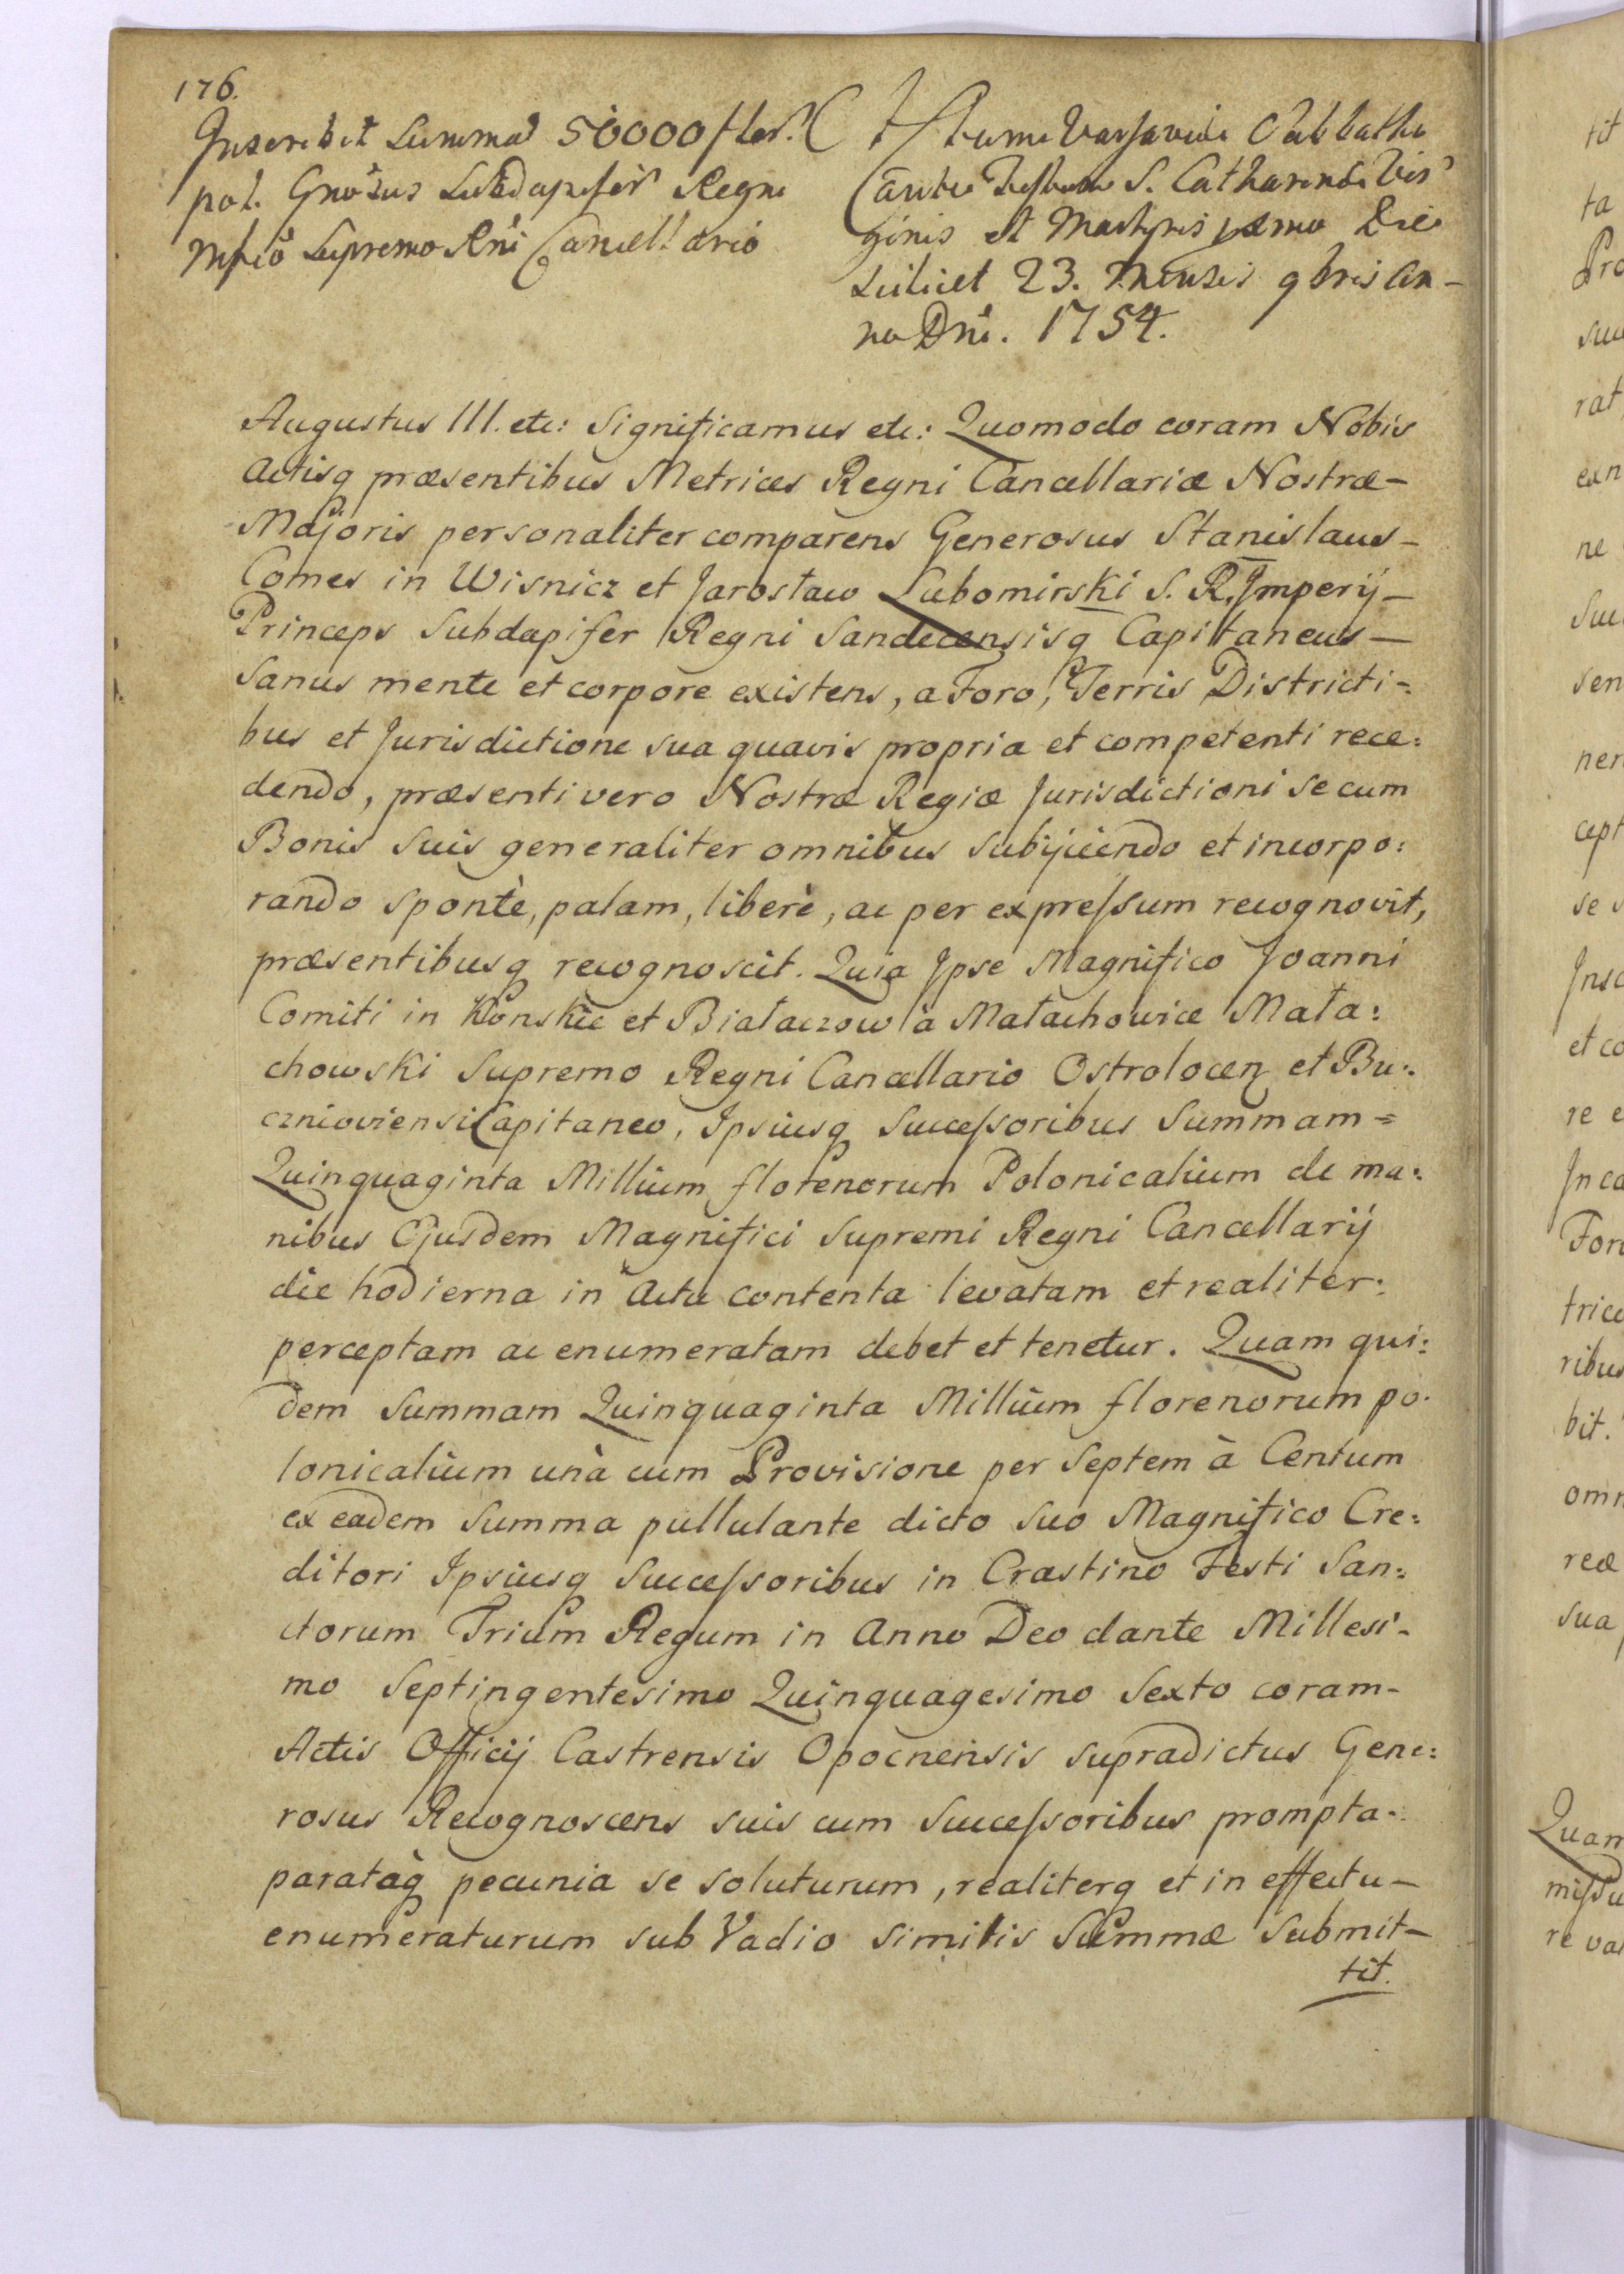 176.
Inscribit Summa 50000 flor.
pol. Gnosus Subdapifer Regni
Mfico Supremo Rni Cancellario
Actum Varsaviæ Sabbatho
ante Festum S. Catharinæ Vir
ginis et Martyris pximo Die
scilicet 23. Mensis 9bris An-
no Dni. 1754.
Augustus III. etc: Significamus etc: Quomodo coram Nobis
Actisq præsentibus Metrices Regni Cancellariæ Nostræ-
Majoris personaliter comparens Generosus Stanislaus-
Comes in Wisnicz et Jarosław Lubomirski S. R. Imperij-
Princeps Subdapifer Regni Sandecensisq Capitaneus-
Sanus mente et corpore existens, a Foro, Terris Districti-
bus et Jurisdictione sua quavis propria et competenti rece:
dendo, præsenti vero Nostræ Regiæ Jurisdictioni se cum
Bonis suis generaliter omnibus subijciendo et incorpo:
rando spontè, palam, liberè, ac per expreſsum recognovit,
præsentibusq recognoscit. Quia Ipse Magnifico Joanni
Comiti in Konskie et Białaczow à Małachowice Mała:
chowski Supremo Regni Cancellario Ostrolocen et Bu:
cznioviensi Capitaneo, Ipsiusq Succeſsoribus Summam=
Quinquaginta Millium florenorum Polonicalium de ma:
nibus Ejusdem Magnifici Supremi Regni Cancellarij
die hodierna in Actu contenta levatam et realiter:
perceptam ac enumeratam debet et tenetur. Quam qui:
dem Summam Quinquaginta Millium florenorum po.
lonicalium unà cum Provisione per Septem à Centum
ex eadem Summa pullulante dicto suo Magnifico Cre:
ditori Ipsiusq Succeſsoribus in Crastino Festi San:
ctorum Trium Regum in Anno Deo dante Millesi-
mo Septingentesimo Quinquagesimo Sexto coram-
Actis Officij Castrensis Opocnensis supradictus Gene:
rosus Recognoscens suis cum Succeſsoribus prompta.
parataq pecunia se soluturum, realiterq et in effectu-
enumeraturum sub Vadio similis Summæ submit-
tit.